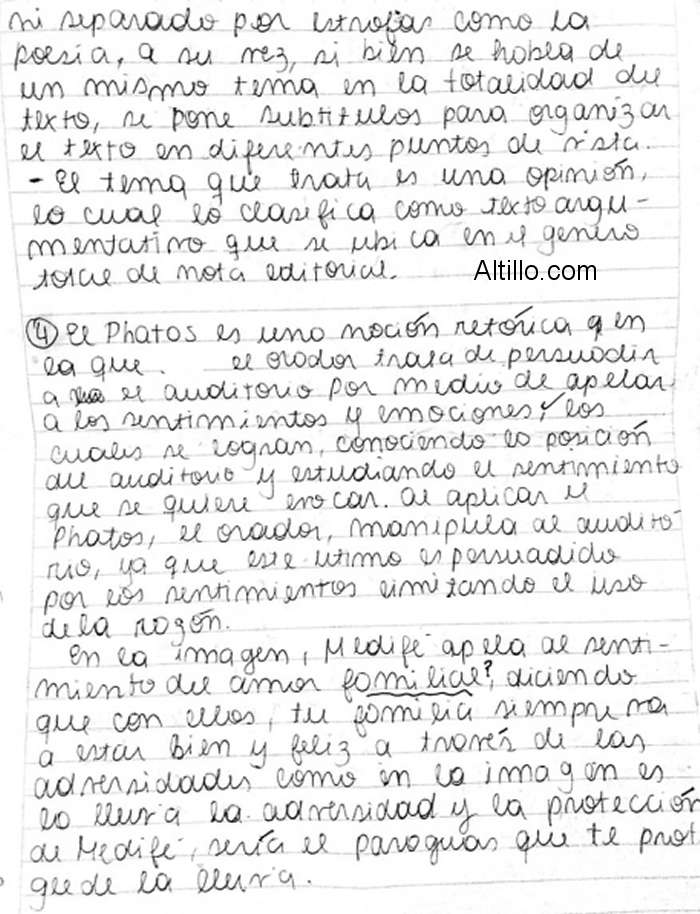 ni separado por estrofas como la
poesia, a su vez, si bien se habla de
un mismo tema en la totalidad del
texto, se pone subtitulos para organizar
el texto en diferentes puntos de vista.
- El tema que trata es una opinión,
lo cual lo clasifica como texto argu-
mentativo que se ubica en el genero
de nota editorial.
Altillo.com
④ El Phatos es una noción retórica q en
la que. el orador trata de persuadir
a el auditorio por medio de apelar
a los sentimientos y emociones, los
cuales se logran, conociendo la posición
del auditorio y estudiando el sentimiento
que se quiere evocar. Al aplicar el
Phatos, el orador, manipula al audito-
rio, ya que este utimo es persuadido
por los sentimientos limitando el uso
de la razón.
En la imagen, Medifé apela al senti-
miento del amor familial?, diciendo
que con ellos, tu familia siempre va
a estar bien y feliz a través de las
adversidades como en la imagen es
lo lluvia la adversidad y la protección
de Medifé, sería el paraguas que te prot
gue de la lluvia.